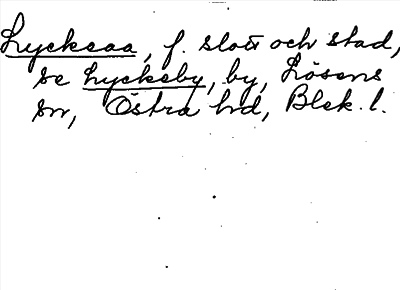 Lyckeaa, f. slott och stad,
se Lyckeby, by, Lösens
sn, Östra hd, Blek. l.